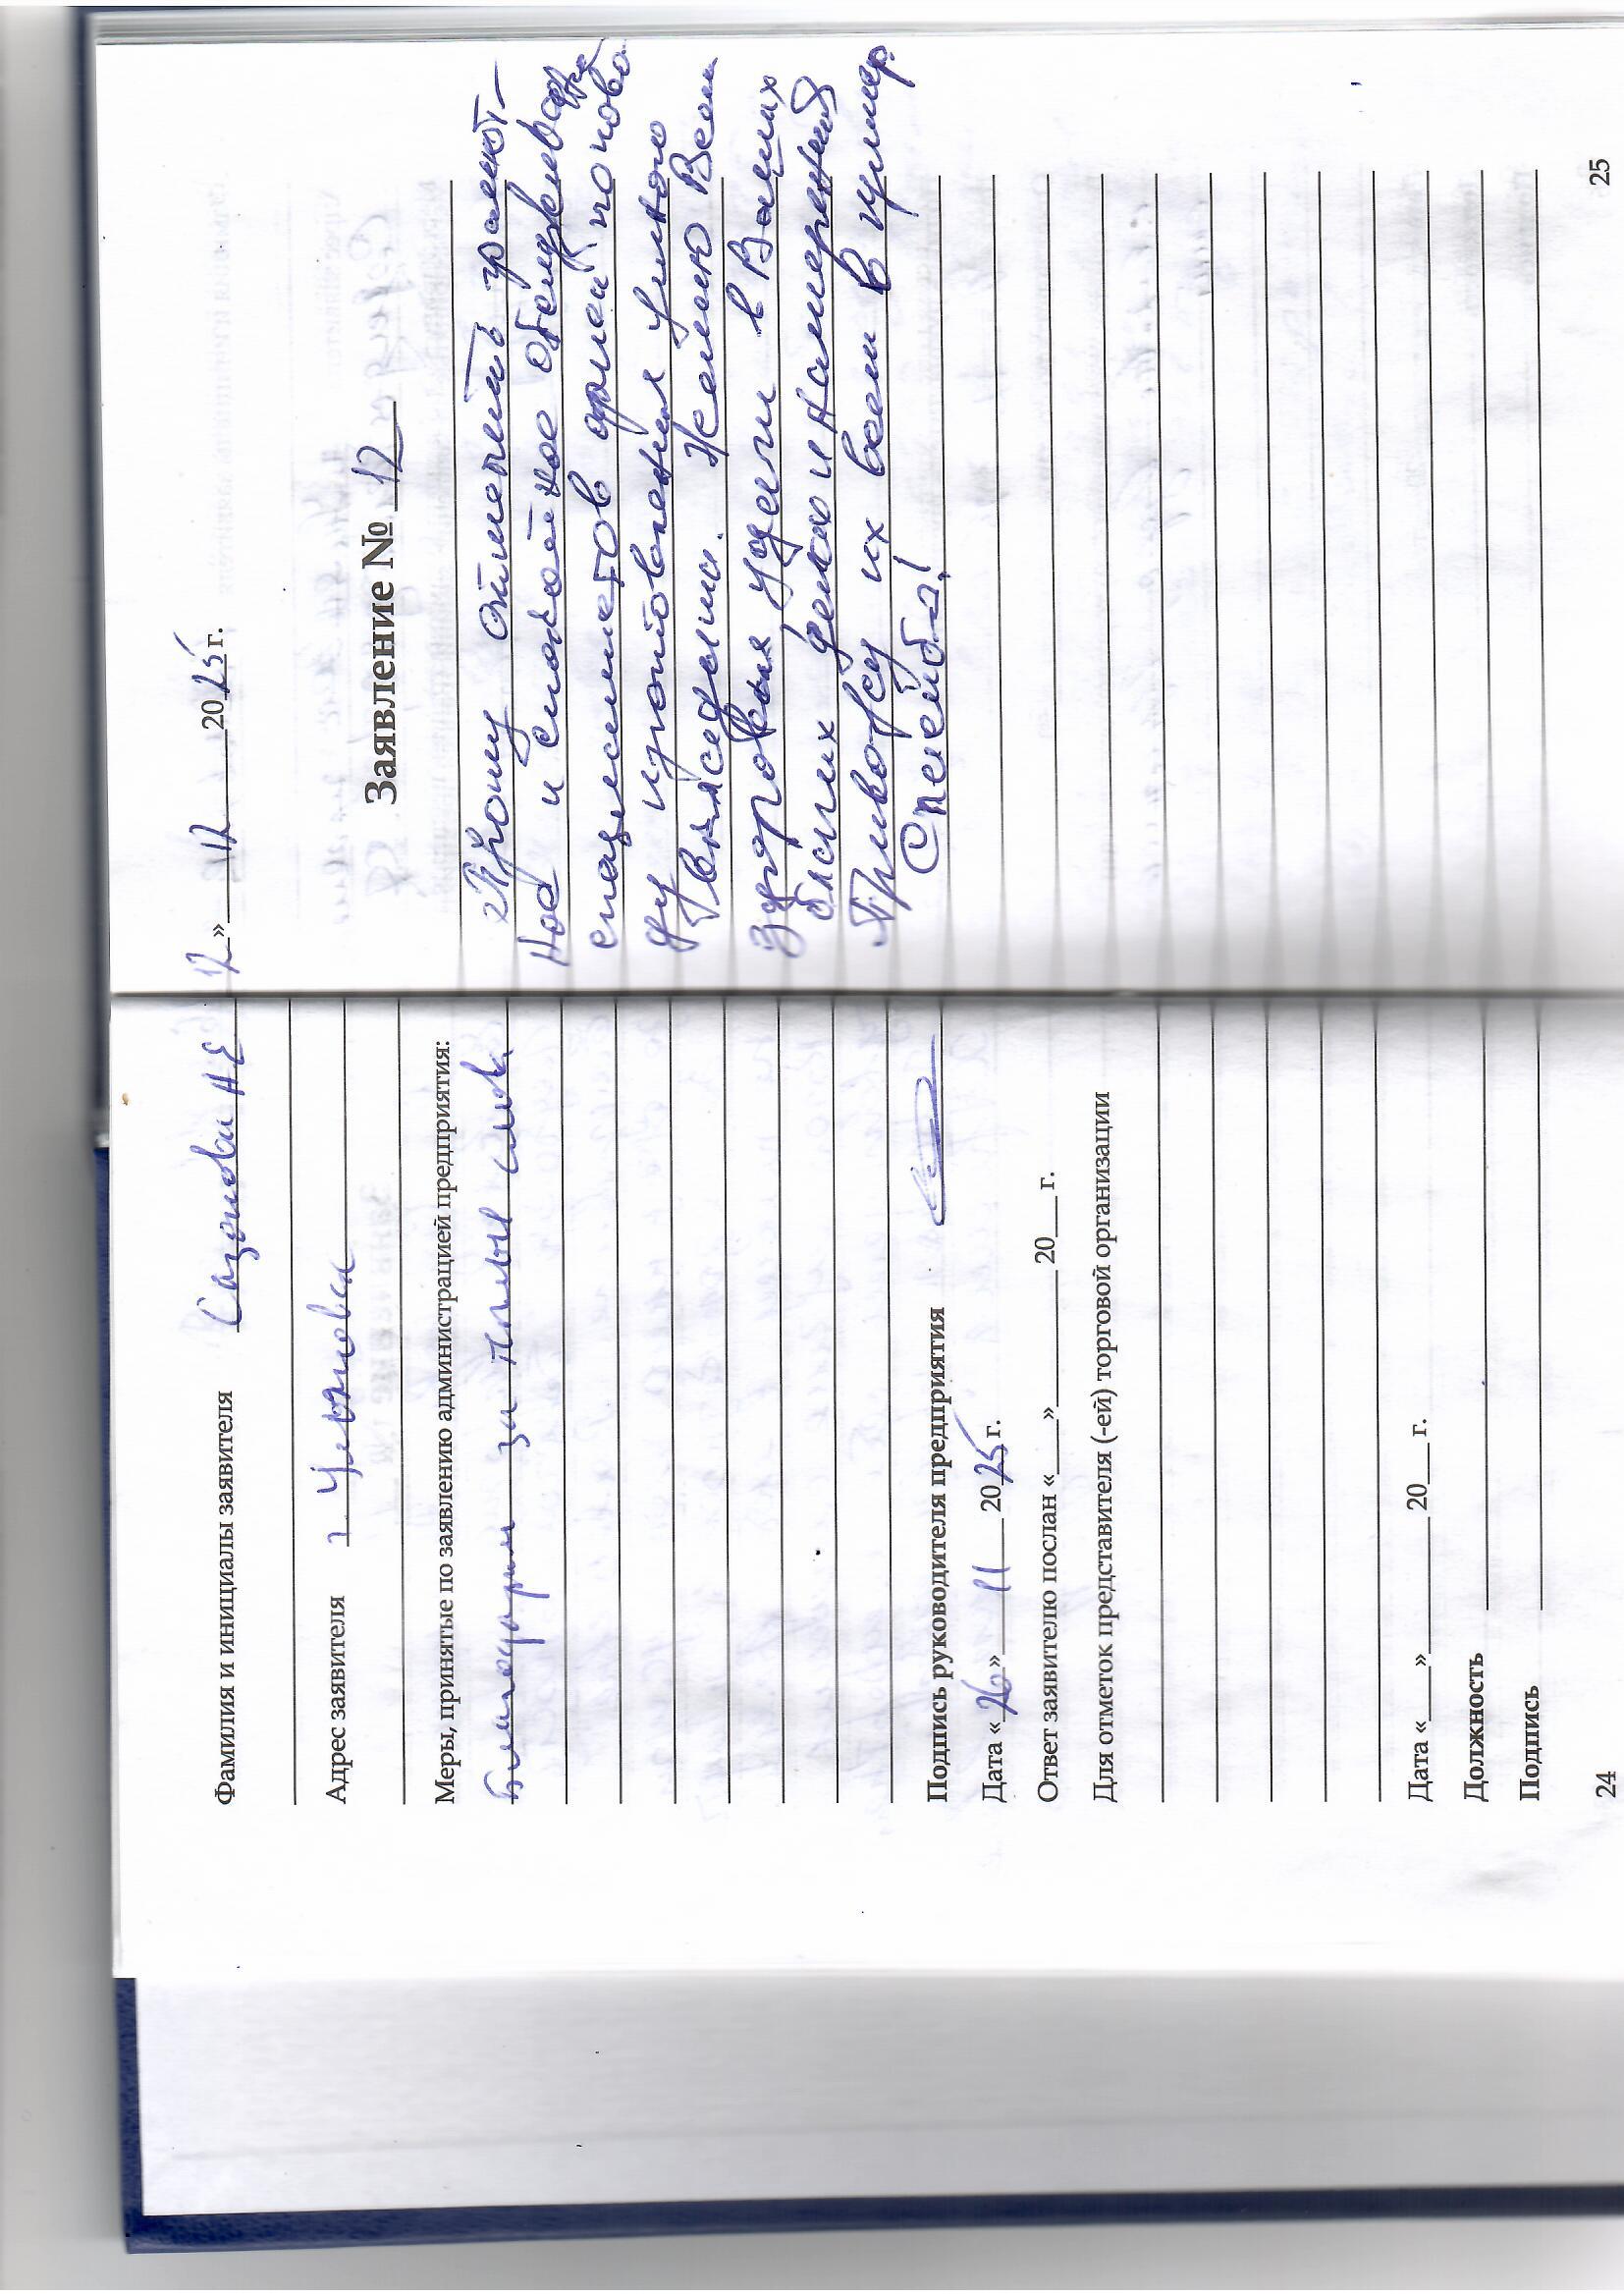 Фамилия и инициалы заявителя Сазонова Н Е
Адрес заявителя г
Меры, принятые по заявлению администрацией предприятия:
Благодарим за теплые слова
Подпись руководителя предприятия
Дата «26» 11 2025 г.
Ответ заявителю послан «___»________20___г.
Для отметок представителя (-ей) торговой организации
Дата «___»________20___г.
Должность
Подпись
24
12» 12 2025 г.
Заявление № 12
Прошу отметить грамот-
ное и спокойное обслуживание
специалистов по пово
ду изготовления
Желаю Всем
здоровья удачи в Ваших
благих делах и намерениях
их всем в пример
Спасибо!
25